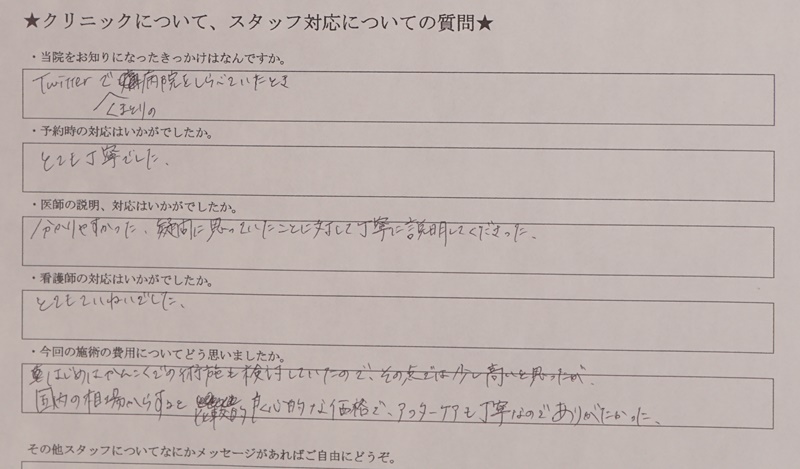 ★クリニックについて、スタッフ対応についての質問★
・当院をお知りになったきっかけはなんですか。
Twitterで病院をしらべていたとき
くまとりの
・予約時の対応はいかがでしたか。
とても丁寧でした。
・医師の説明、対応はいかがでしたか。
分かりやすかった、疑問に思っていたことに対して丁寧に説明してくださった。
・看護師の対応はいかがでしたか。
とてもていねいでした、
・今回の施術の費用についてどう思いましたか。
はじめはかんこくでの術施も検討していたので、その点では少し高いと思ったが、
国内の相場からすると 比較的良心的な価格で、アフターケアも丁寧なのでありがたかった。
その他スタッフについてなにかメッセージがあればご自由にどうぞ。